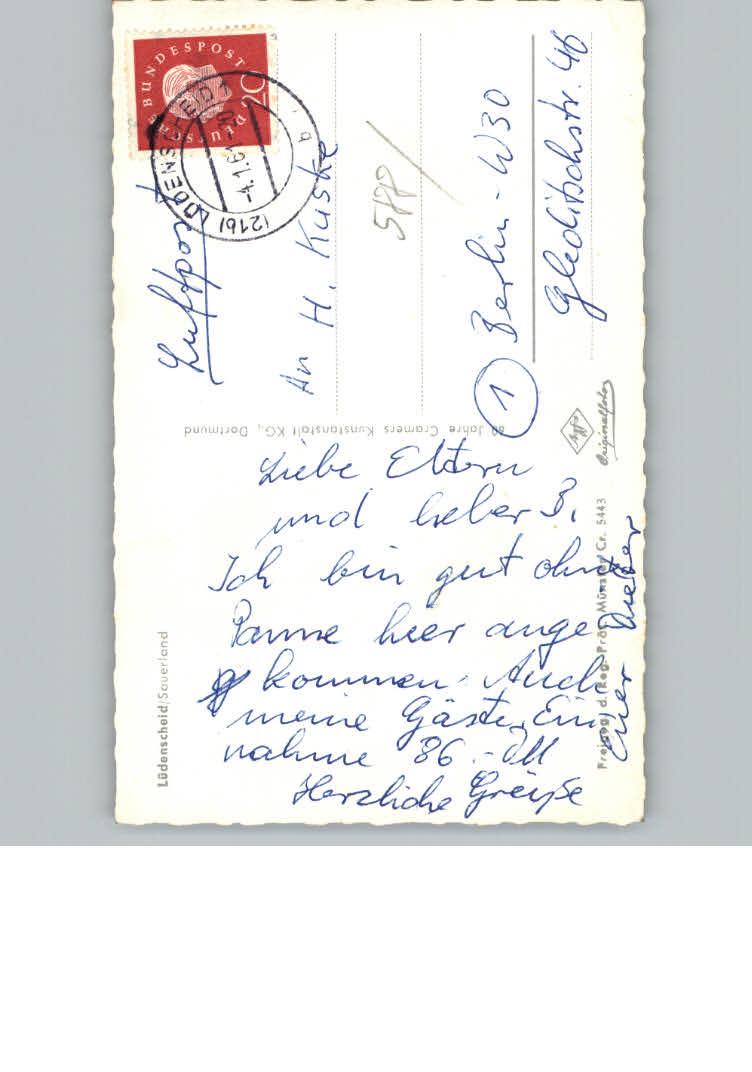 Lüdenscheid/Sauerland
Liebe Eltern
und lieber B.
Ich bin gut ohne
Panne hier ange
kommen. Auch
meine Gäste. Ein
nahme 86.- DM
Herzliche Grüße
Euer Dieter
Freigeg. d. Reg. Präs. Münster Cr. 5443
60 Jahre Cramers Kunstanstalt KG., Dortmund
Agfa
Originalfoto
DEUTSCHE BUNDESPOST
20
(21b) LÜDENSCHEID 1
-4.1.61-20
b
Luftpost
An H. Kuske
588/
1 Berlin-W30
Gleditschstr. 46